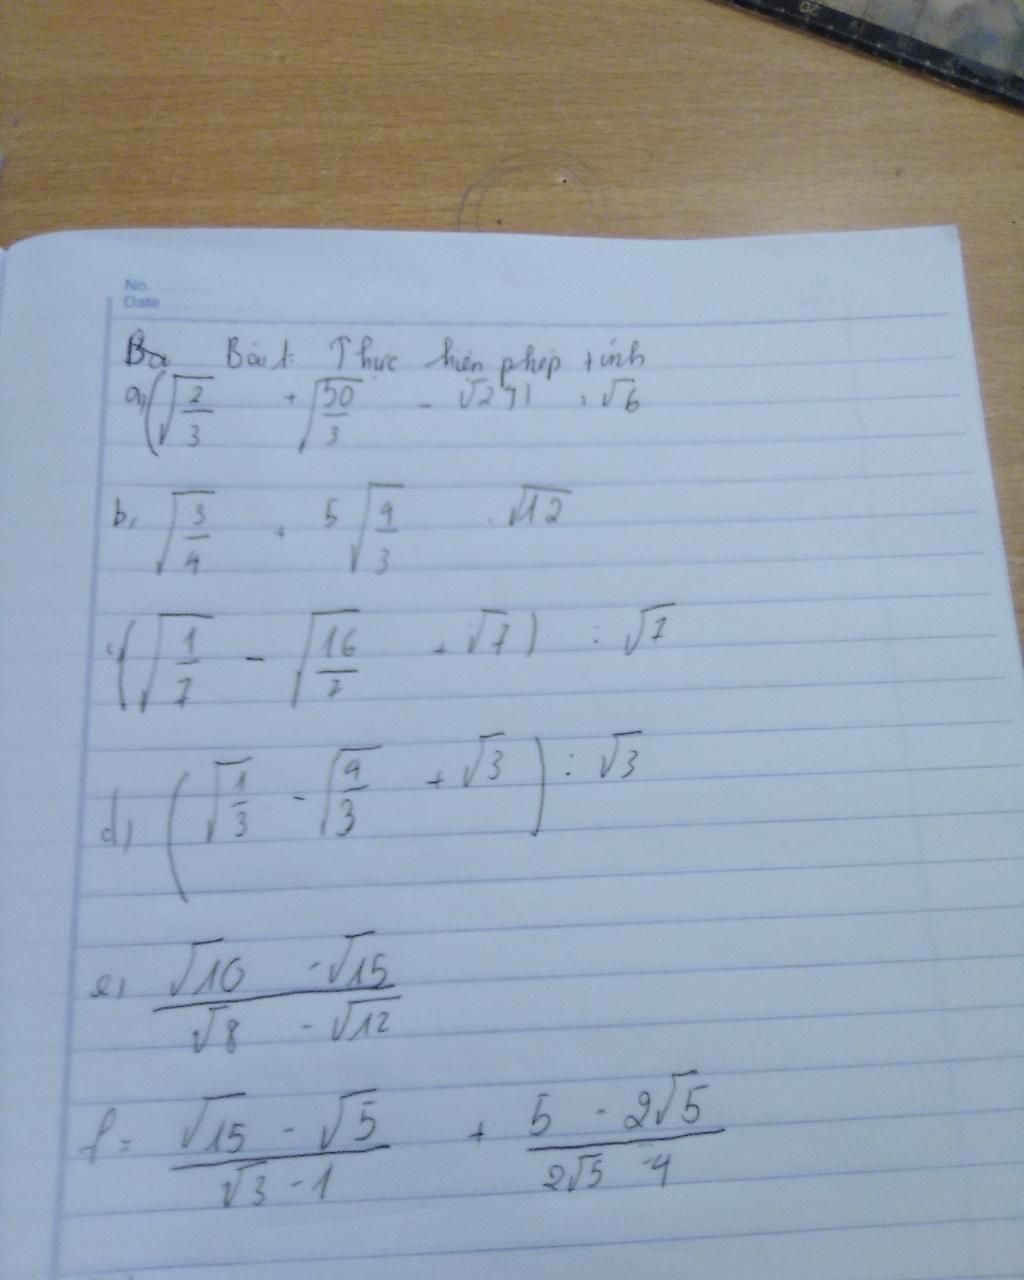 No.
Date
Bài 1: Thực hiện phép tính
a, (√(2/3) + √(50/3) - √24) : √6
b, √(3/4) + 5√(9/3) . √12
c, (√(1/7) - √(16/7) + √7) : √7
d, (√(1/3) - √(9/3) + √3) : √3
e, (√10 - √15)/(√8 - √12)
f = (√15 - √5)/(√3 - 1) + (5 - 2√5)/(2√5 - 4)